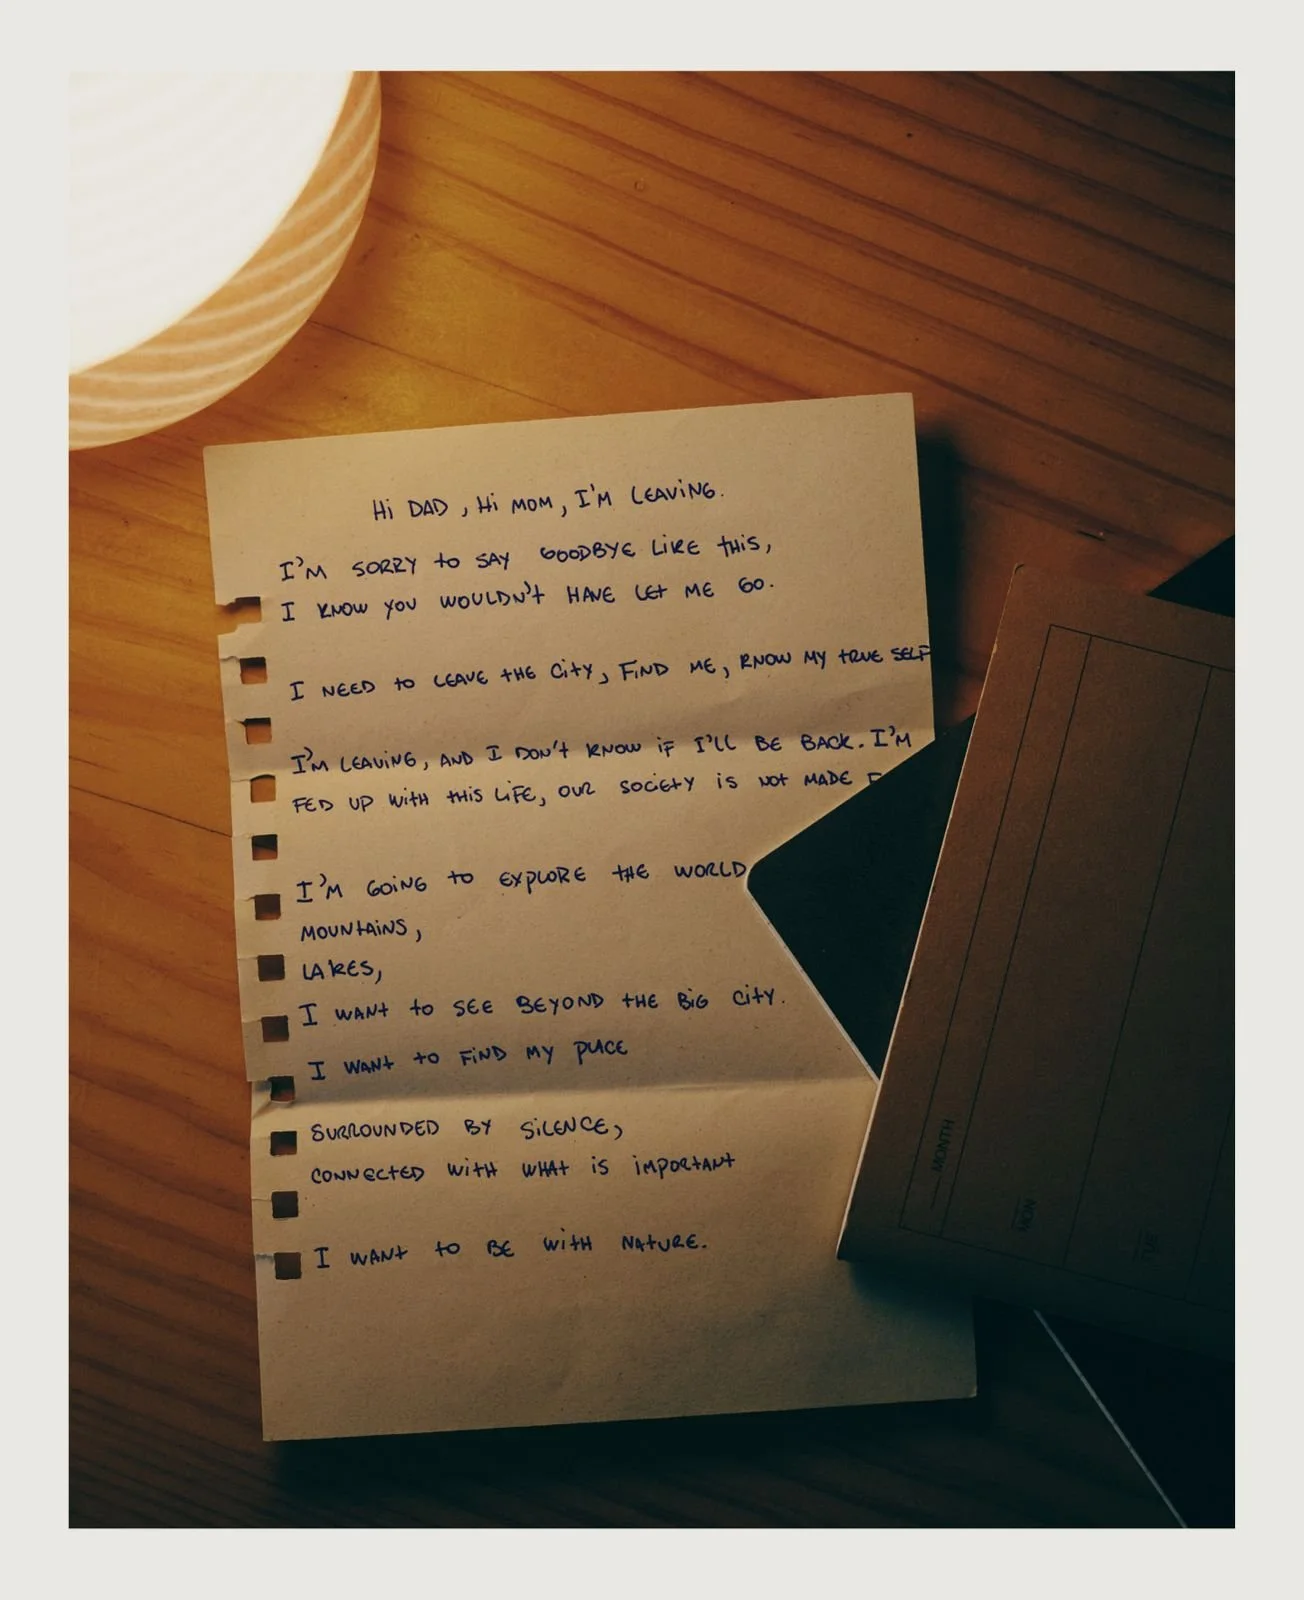 Hi DAD, Hi MOM, I'M LEAVING.
I'M SORRY to SAY GOODBYE LIKE tHiS,
I KNOW YOU WOULDN't HAVE LEt ME GO.
I NEED to LEAVE tHE CitY, FiND ME, KNOW MY tRUE SELF
I'M LEAVING, AND I DON't KNOW iF I'LL BE BACK. I'M
FED UP WitH tHiS LiFE, OUR SOCiEtY iS NOt MADE
I'M GOiNG tO EXPLORE tHE WORLD
MOUNtAiNS,
LAKES,
I WANt to SEE BEYOND tHE BiG CitY.
I WANt to FiND MY PLACE
SURROUNDED BY SiLENCE,
CONNECtED WitH WHAt iS iMPORtANt
I WANt to BE WitH NAtURE.
MONTH
MON
TUE